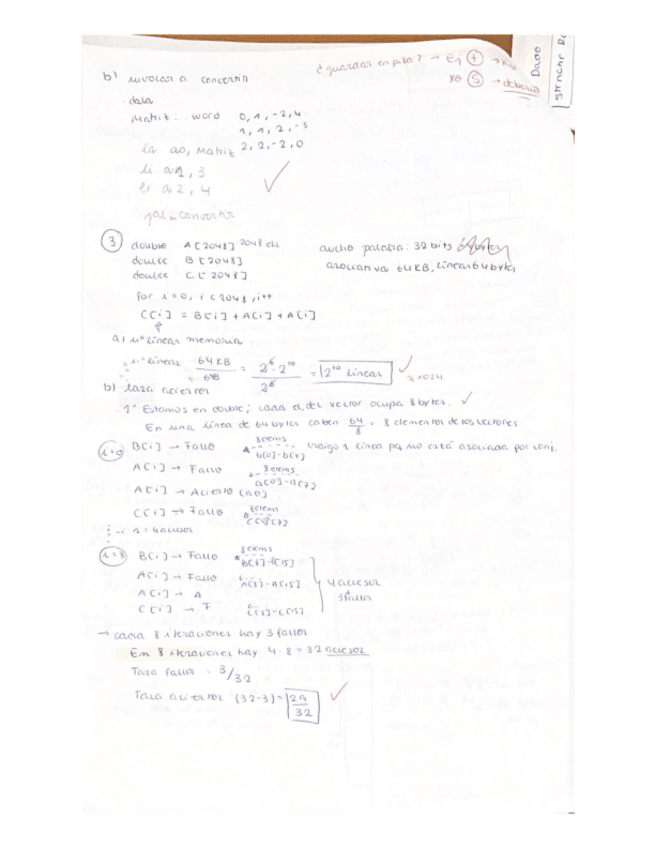 ¿guardar en pila? → Ej (+) → No
(S) → debería
Dado
b) invocar a convertir
.data
Matriz: word 0, 1, -2, 4
1, 1, 2, -3
2, 2, -2, 0
la a0, Matriz
li a1, 3
li a2, 4
jal convertir
3 double A[2048]
double B[2048]
double C[2048]
ancho palabra: 32 bits
64 KB, líneas 64 bytes
for i=0, i<2048, i++
C[i] = B[i] + A[i] + A[i]
a) nº líneas memoria
nº líneas 64 KB / 64B = 2^6 · 2^10 / 2^6 = 2^10 líneas
≈ 1024
b) tasa aciertos
1º Estamos en double; cada el. del vector ocupa 8 bytes.
En una línea de 64 bytes caben 64/8 = 8 elementos de los vectores
i=0 B[i] → Fallo 8 elems b[0]-b[7] traigo 1 línea pq no está asociada por conj.
A[i] → Fallo 8 elems a[0]-a[7]
A[i] → Acierto (a0)
C[i] → Fallo 8 elems c[0]-c[7]
i=8 B[i] → Fallo 8 elems B[8]-B[15]
A[i] → Fallo A[8]-A[15]
A[i] → A
C[i] → F C[8]-C[15]
4 accesos
3 fallos
→ cada 8 iteraciones hay 3 fallos
En 8 iteraciones hay 4·8 = 32 accesos
Tasa fallos = 3/32
Tasa aciertos (32-3) = 29/32